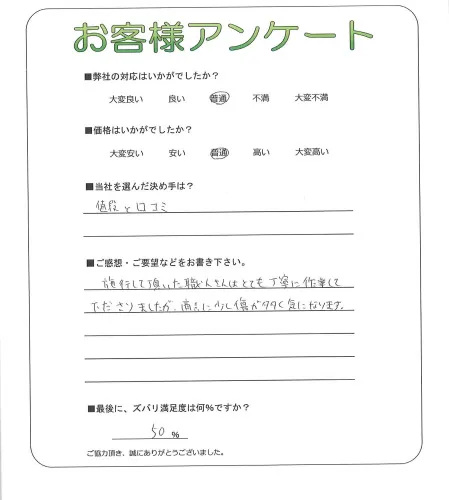 お客様アンケート
■弊社の対応はいかがでしたか？
大変良い 良い 普通 不満 大変不満
■価格はいかがでしたか？
大変安い 安い 普通 高い 大変高い
■当社を選んだ決め手は？
値段と口コミ
■ご感想・ご要望などをお書き下さい。
施行して頂いた職人さんはとても丁寧に作業して
下ださりましたが、商品に少し傷が多く気になります。
■最後に、ズバリ満足度は何％ですか？
50 %
ご協力頂き、誠にありがとうございました。